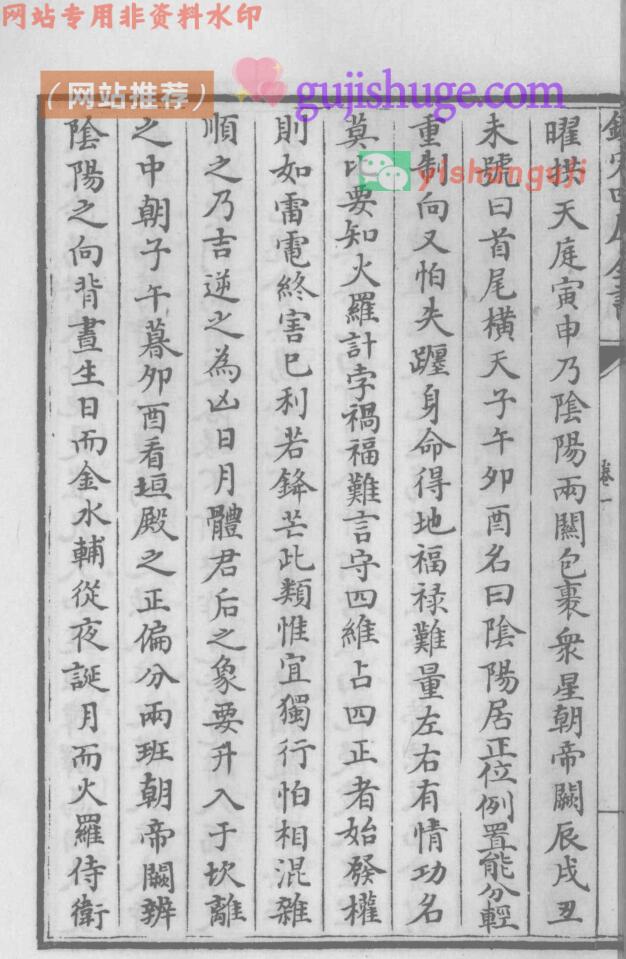 网站专用非资料水印
(网站推荐)
gujishuge.com
yishuguji
欽定四庫全書
卷一
曜拱天庭寅申乃陰陽兩關包裹衆星朝帝闕辰戌丑
未號曰首尾橫天子午卯酉名曰陰陽居正位例置能分輕
重制向又怕失躔身命得地福祿難量左右有情功名
莫比要知火羅計孛禍福難言守四維占四正者始發權
則如雷電終害已利若鋒芒此類惟宜獨行怕相混雜
順之乃吉逆之為凶日月體君后之象要升入于坎離
之中朝子午暮卯酉看垣殿之正偏分兩班朝帝闕辨
陰陽之向背晝生日而金水輔從夜誕月而火羅侍衛